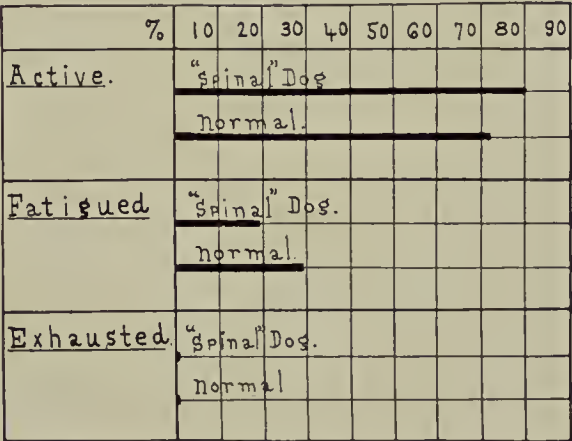 % 10 20 30 40 50 60 70 80 90
Active. "Spinal" Dog
normal.
Fatigued "Spinal" Dog.
normal.
Exhausted. "Spinal" Dog.
normal